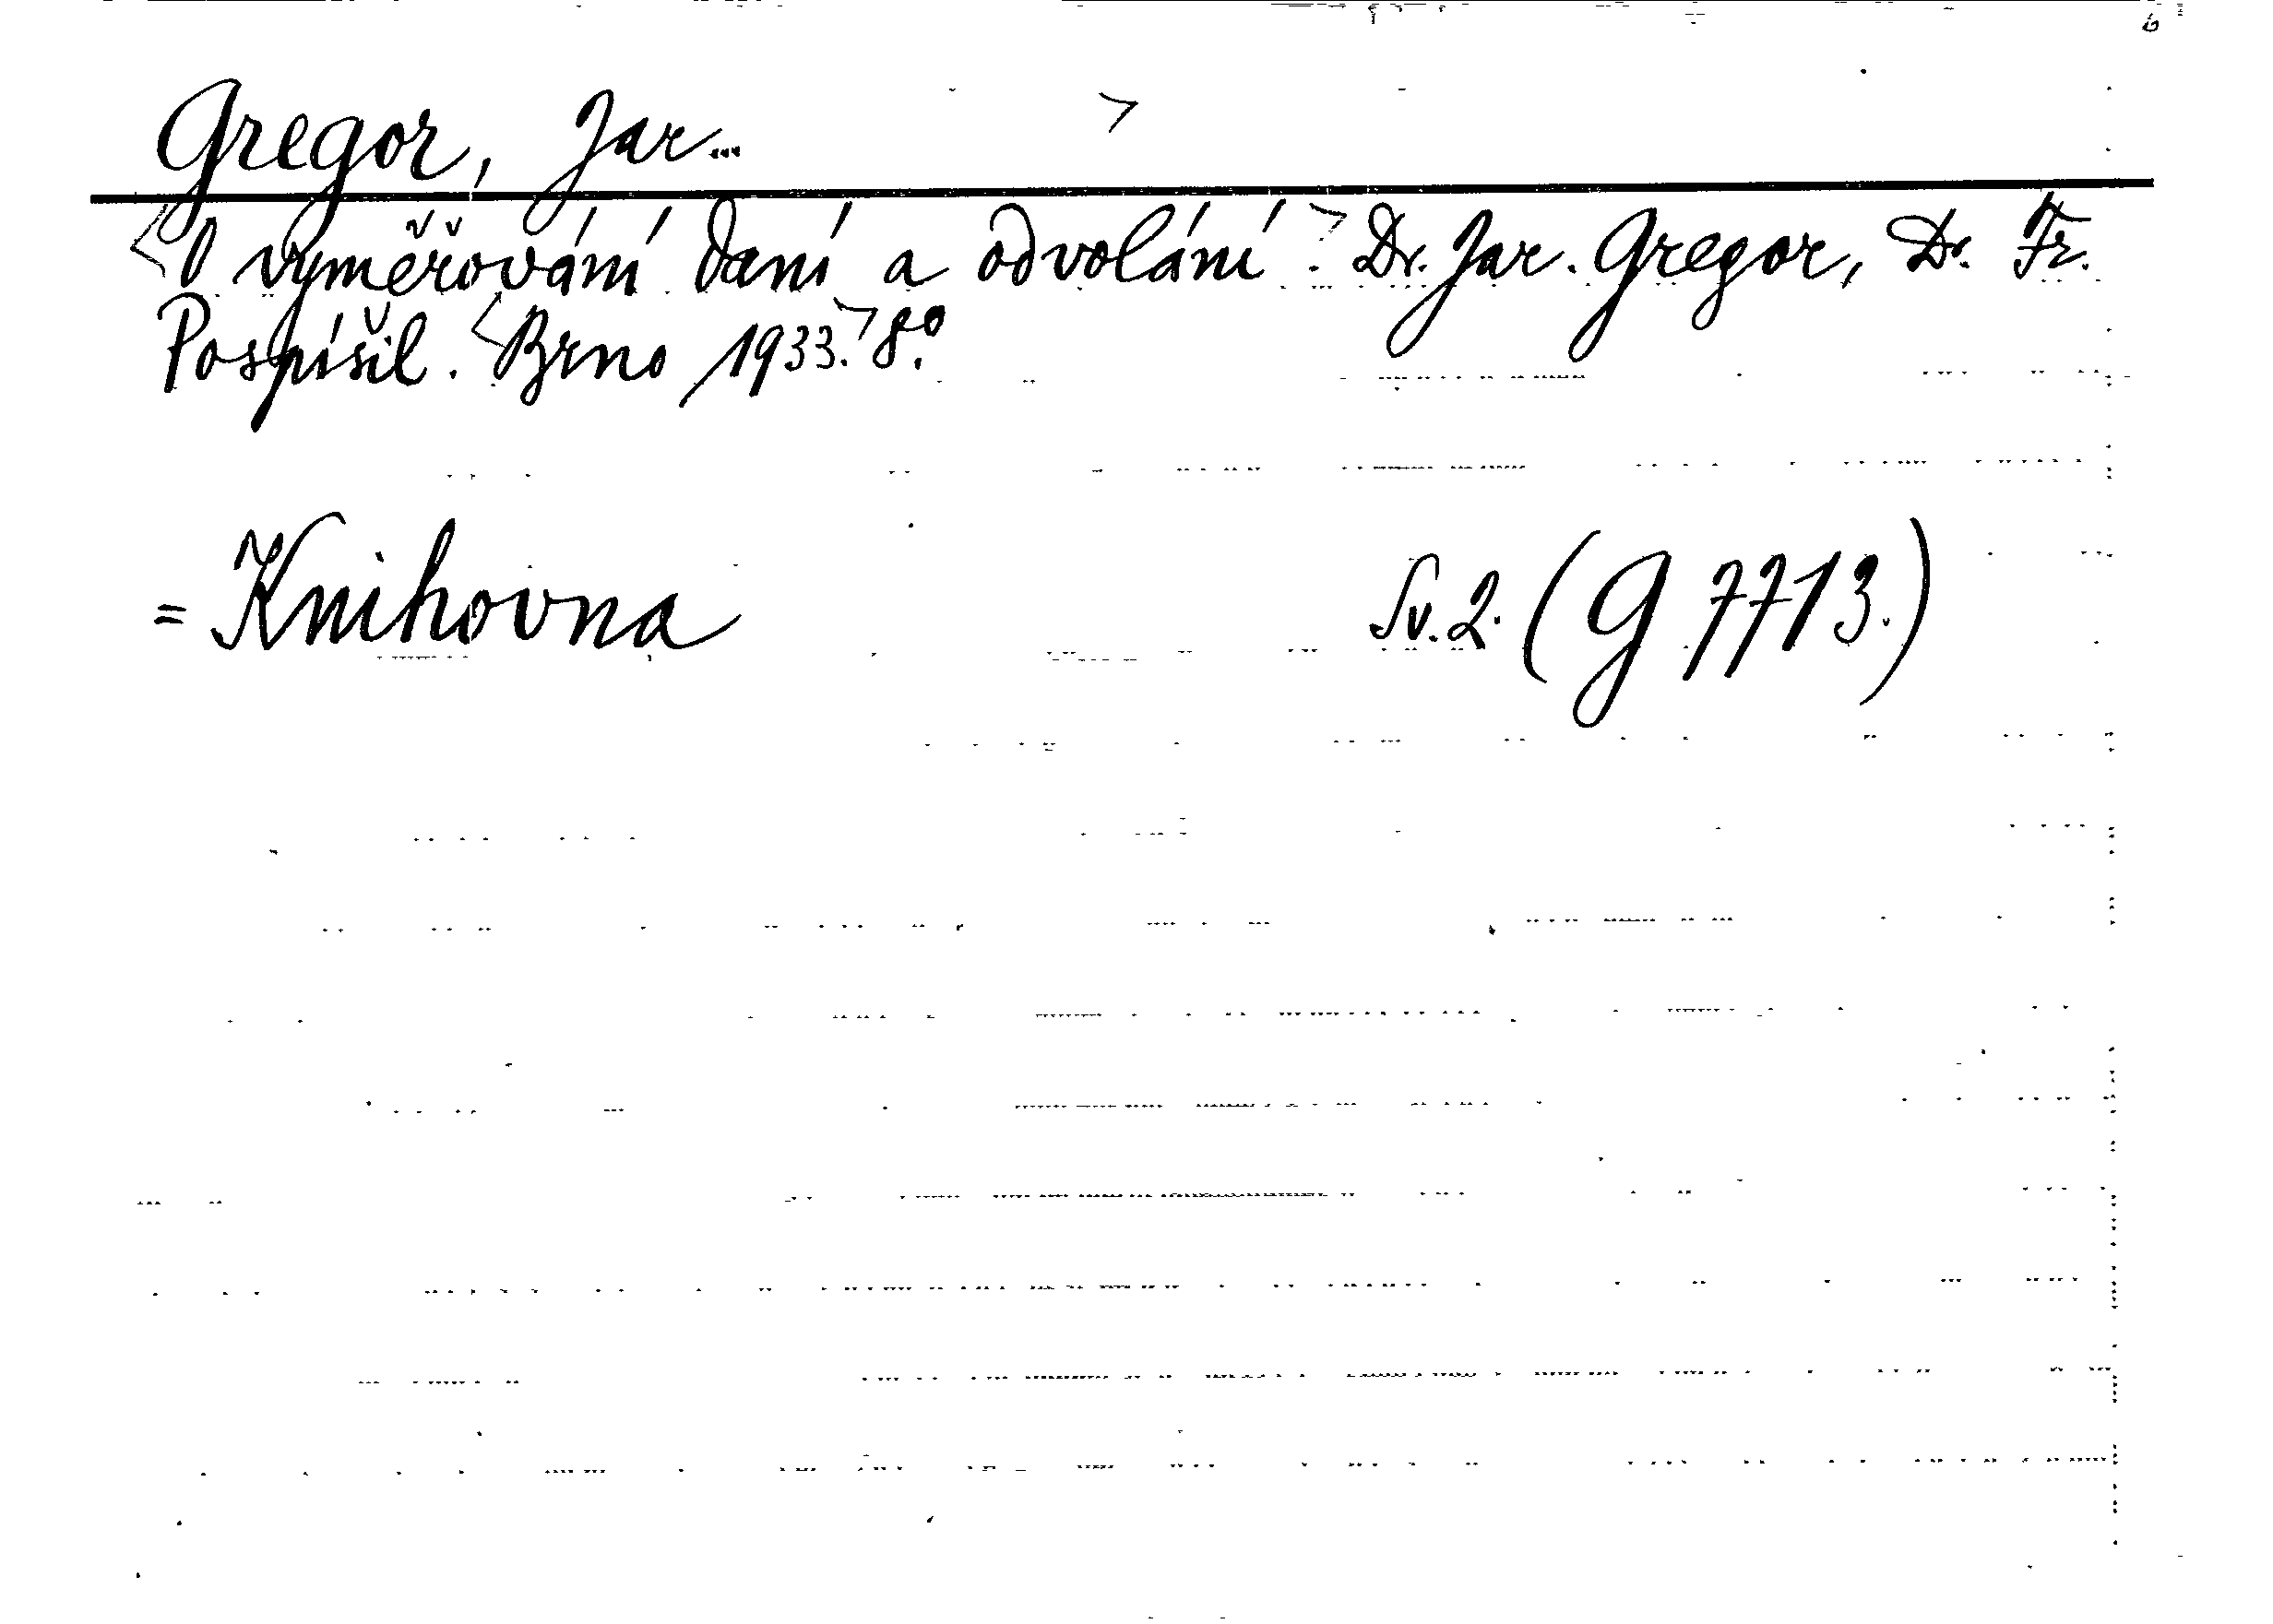 Gregor, Jar...
<O vyměřování daní a odvolání.> Dr. Jar. Gregor, Dr. Fr.
Pospíšil. <Brno 1933.> 8°.
= Knihovna Sv. 2. (G 7713.)